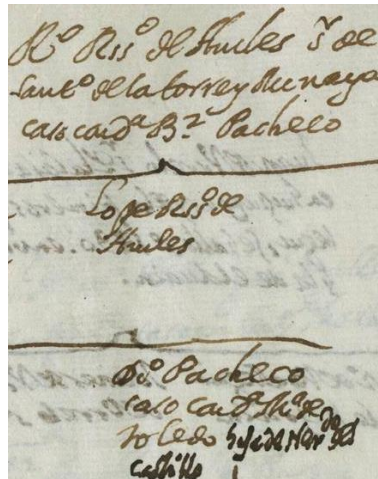 Rº Rssº de Aviles sʳ de
Santº de la torre y Minaya
caso con dª Bʳ Pacheco
Lope Rssº de
Aviles
Dº. Pacheco
caso con dª Mª de
toledo hija de Her dº del
castillo